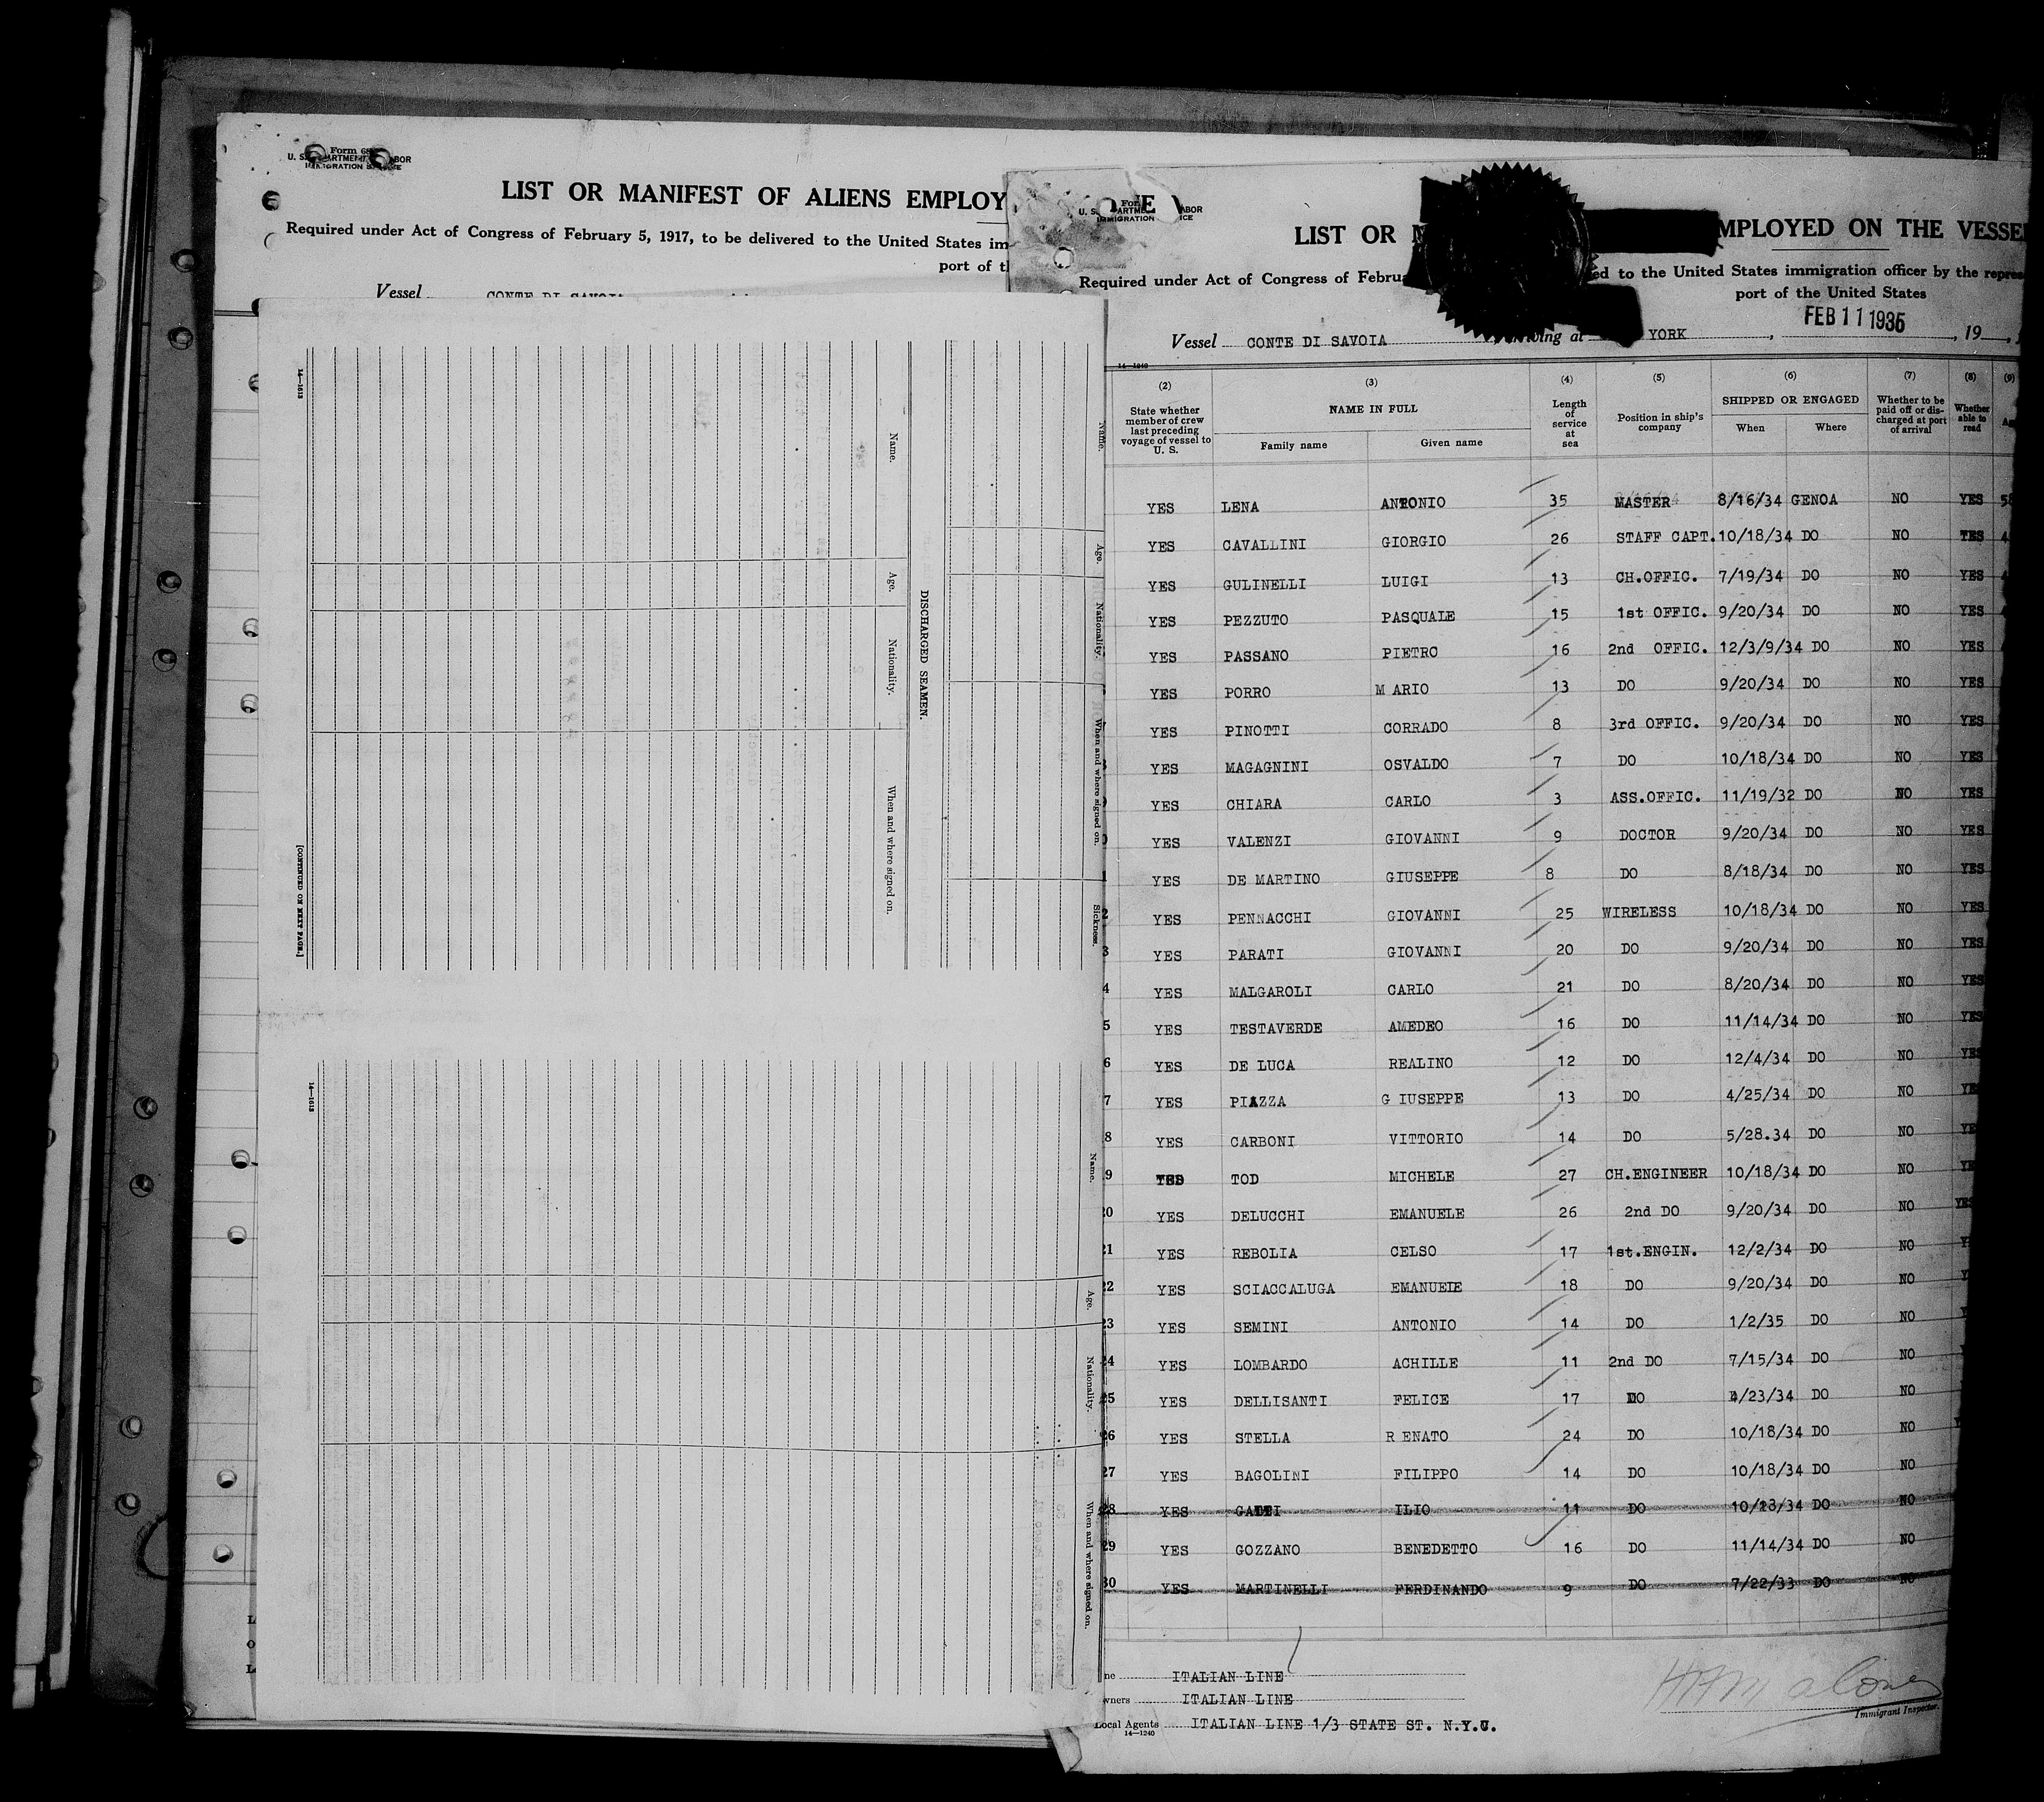 Form 68
U. S. DEPARTMENT LABOR
IMMIGRATION SERVICE
LIST OR MANIFEST OF ALIENS EMPLOY
Required under Act of Congress of February 5, 1917, to be delivered to the United States im
port of th
Vessel CONTE DI SAVOIA
14—1613
Name.
Age.
Nationality.
When and where signed on.
DISCHARGED SEAMEN.
[CONTINUED ON NEXT PAGE.]
Name.
Age.
Nationality.
When and where signed on.
Sickness.
14—1613
Name.
Age.
Nationality.
When and where signed on.
For
U. S. DEPARTME LABOR
IMMIGRATION ICE
LIST OR M MPLOYED ON THE VESSEL
Required under Act of Congress of Februa ed to the United States immigration officer by the repres
port of the United States
Vessel CONTE DI SAVOIA arriving at YORK, FEB 11 1935, 19
14—1240
(2) (3) (4) (5) (6) (7) (8) (9)
State whether member of crew last preceding voyage of vessel to U. S.
NAME IN FULL
Family name Given name
Length of service at sea
Position in ship's company
SHIPPED OR ENGAGED
When Where
Whether to be paid off or discharged at port of arrival
Whether able to read
YES LENA ANTONIO 35 MASTER 8/16/34 GENOA NO YES
YES CAVALLINI GIORGIO 26 STAFF CAPT. 10/18/34 DO NO YES
YES GULINELLI LUIGI 13 CH.OFFIC. 7/19/34 DO NO YES
YES PEZZUTO PASQUALE 15 1st OFFIC. 9/20/34 DO NO YES
YES PASSANO PIETRO 16 2nd OFFIC. 12/3/9/34 DO NO YES
YES PORRO M ARIO 13 DO 9/20/34 DO NO YES
YES PINOTTI CORRADO 8 3rd OFFIC. 9/20/34 DO NO YES
YES MAGAGNINI OSVALDO 7 DO 10/18/34 DO NO YES
YES CHIARA CARLO 3 ASS.OFFIC. 11/19/32 DO NO YES
YES VALENZI GIOVANNI 9 DOCTOR 9/20/34 DO NO YES
1 YES DE MARTINO GIUSEPPE 8 DO 8/18/34 DO NO YES
2 YES PENNACCHI GIOVANNI 25 WIRELESS 10/18/34 DO NO YES
3 YES PARATI GIOVANNI 20 DO 9/20/34 DO NO YES
4 YES MALGAROLI CARLO 21 DO 8/20/34 DO NO YES
5 YES TESTAVERDE AMEDEO 16 DO 11/14/34 DO NO YES
6 YES DE LUCA REALINO 12 DO 12/4/34 DO NO YES
7 YES PIAZZA G IUSEPPE 13 DO 4/25/34 DO NO YE
8 YES CARBONI VITTORIO 14 DO 5/28.34 DO NO YE
9 TOD MICHELE 27 CH.ENGINEER 10/18/34 DO NO YE
20 YES DELUCCHI EMANUELE 26 2nd DO 9/20/34 DO NO YES
21 YES REBOLIA CELSO 17 1st.ENGIN. 12/2/34 DO NO Y
22 YES SCIACCALUGA EMANUELE 18 DO 9/20/34 DO NO Y
23 YES SEMINI ANTONIO 14 DO 1/2/35 DO NO
24 YES LOMBARDO ACHILLE 11 2nd DO 7/15/34 DO NO
25 YES DELLISANTI FELICE 17 DO 4/23/34 DO NO
26 YES STELLA R ENATO 24 DO 10/18/34 DO NO
27 YES BAGOLINI FILIPPO 14 DO 10/18/34 DO NO
28 YES ILIO 11 DO 10/23/34 DO NO
29 YES GOZZANO BENEDETTO 16 DO 11/14/34 DO NO
30 YES MARTINELLI FERDINANDO 9 DO 7/22/33 DO NO
ne ITALIAN LINE
wners ITALIAN LINE
Local Agents ITALIAN LINE 1/3 STATE ST. N.Y.C.
14—1240
Malone
Immigrant Inspector.